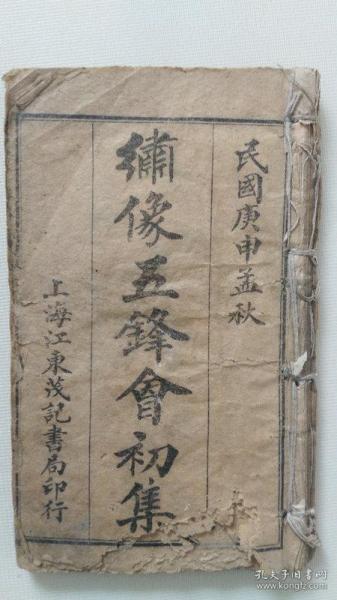 民國庚申孟秋
繡像五鋒會初集
上海江東茂記書局印行
孔夫子旧书网
www.kongfz.com